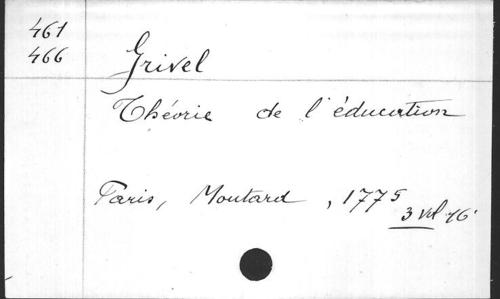 461
466
Grivel
Théorie de l'éducation
Paris, Moutard, 1775
3 vol